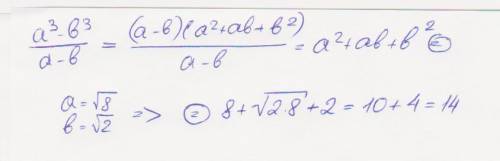 (a³-b³)/(a-b) = ((a-b)(a²+ab+b²))/(a-b) = a²+ab+b² ⊜
a=√8
b=√2 => ⊜ 8+√2·8+2 = 10+4 = 14